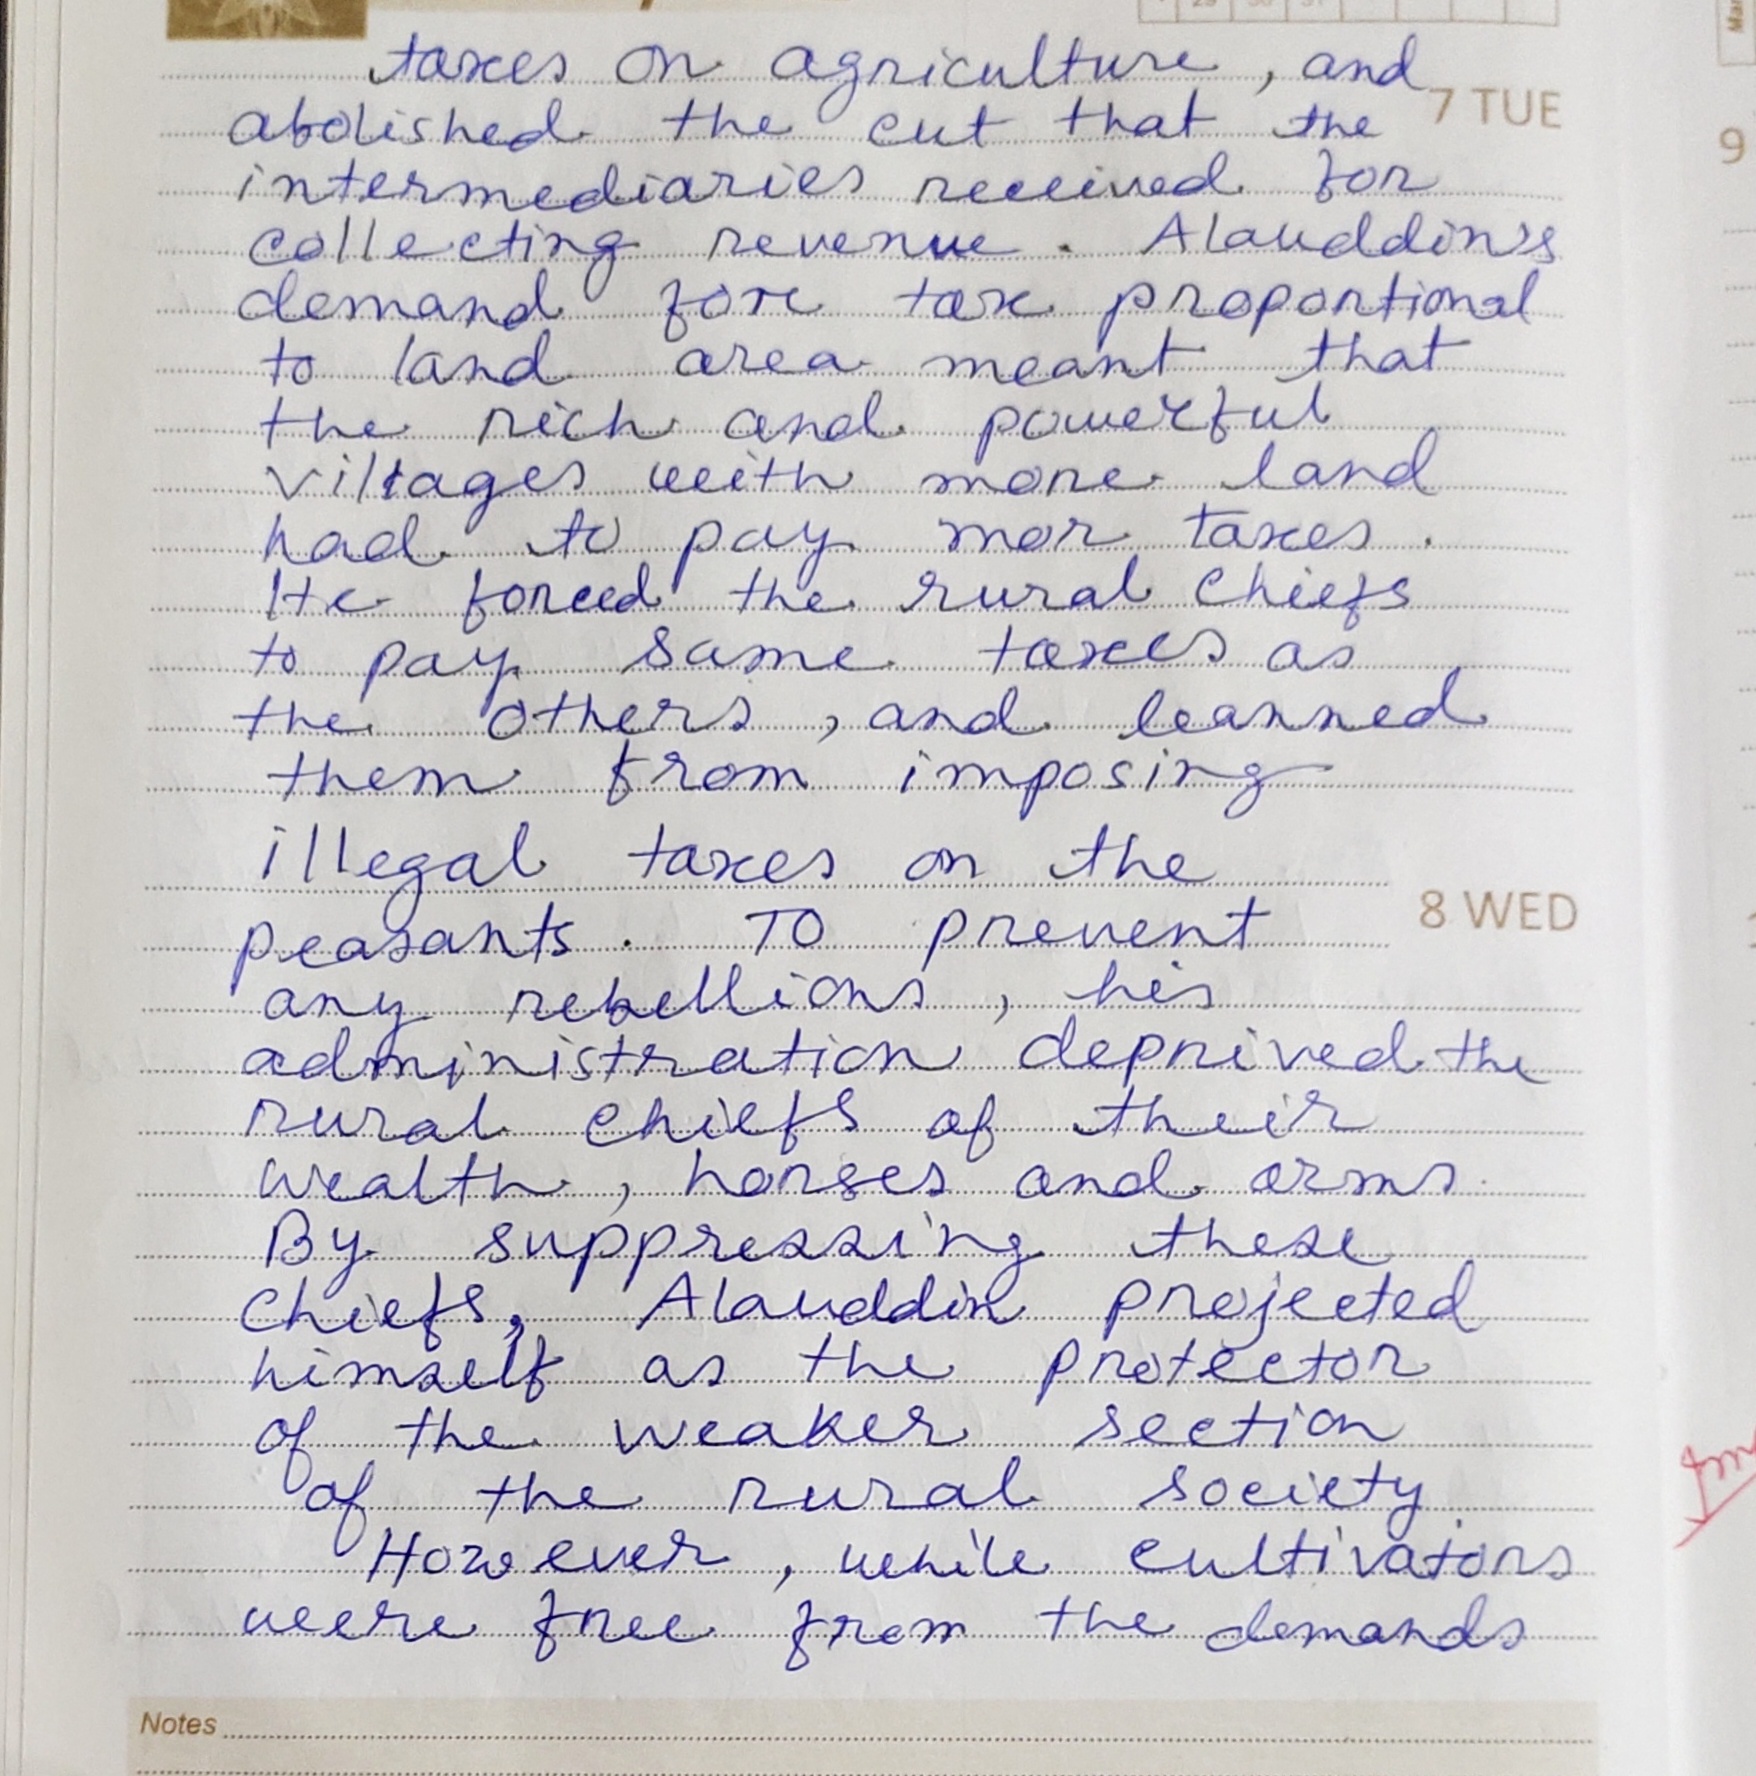 taxes on agriculture, and
7 TUE
abolished the cut that the
intermediaries received for
collecting revenue. Alauddin's
demand for tax proportional
to land area meant that
the rich and powerful
villages with more land
had to pay mor taxes.
He forced the rural chiefs
to pay same taxes as
the others, and leanned
them from imposing
illegal taxes on the
8 WED
peasants. TO prevent
any rebellions, his
administration deprived the
rural chiefs of their
wealth, horses and arms
By suppressing these
chiefs, Alauddin projected
himself as the protector
of the weaker section
of the rural society.
However, while cultivators
were free from the demands
Notes
9